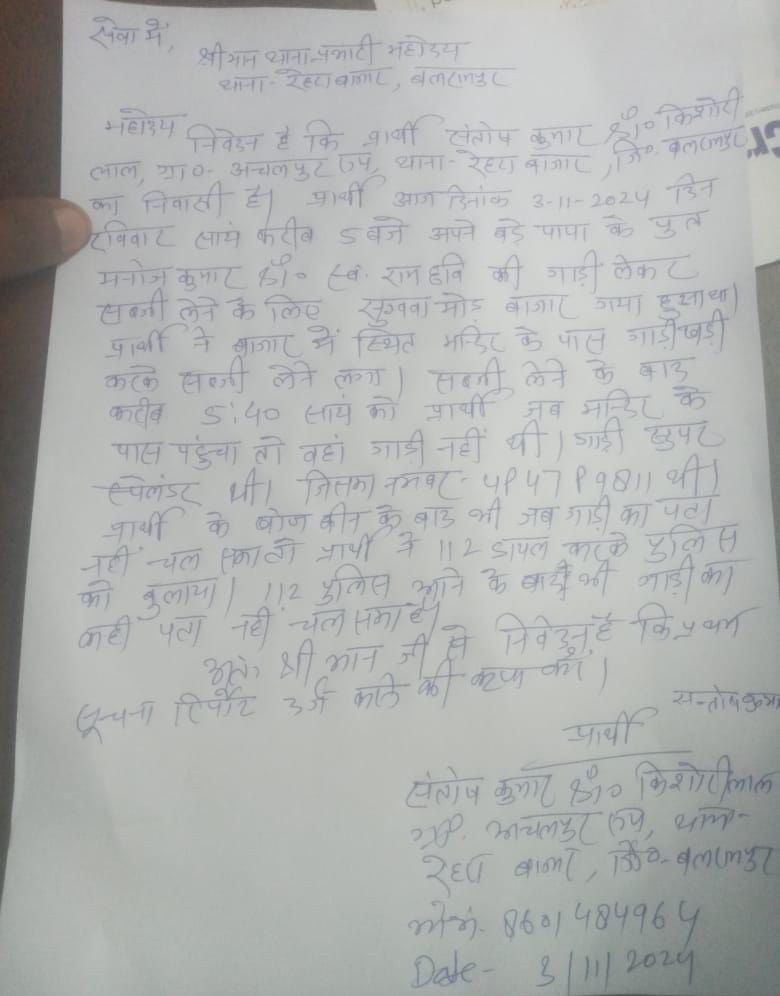 सेवा में,
श्रीमान थाना-प्रभारी महोदय
थाना- रेहरा बाजार, बलरामपुर
महोदय
निवेदन है कि प्रार्थी संतोष कुमार S/o किशोरी
लाल, ग्रा०- अचलपुर रूप, थाना- रेहरा बाजार, जि०- बलरामपुर
का निवासी है। प्रार्थी आज दिनांक 3-11-2024 दिन
रविवार सायं करीब 5 बजे अपने बड़े पापा के पुत्र
मनोज कुमार S/o स्व. राम छवि की गाड़ी लेकर
सब्जी लेने के लिए सुगवा मोड़ बाजार गया हुआ था।
प्रार्थी ने बाजार में स्थित मन्दिर के पास गाड़ी खड़ी
करके सब्जी लेने लगा। सब्जी लेने के बाद
करीब 5:40 सायं को प्रार्थी जब मन्दिर के
पास पहुंचा तो वहां गाड़ी नहीं थी। गाड़ी सुपर
स्पेलंडर थी। जिसका नम्बर- UP 47 P 9811 थी।
प्रार्थी के खोज बीन के बाद भी जब गाड़ी का पता
नहीं चल सका तो प्रार्थी ने 112 डायल करके पुलिस
को बुलाया। 112 पुलिस आने के बाद भी गाड़ी का
कहीं पता नहीं चल सका है।
अतः श्री मान जी से निवेदन है कि प्रथम
सूचना रिपोर्ट दर्ज करने की कृपा करें।
सन्तोष कुमा
प्रार्थी
संतोष कुमार S/o किशोरीलाल
ग्रा०. अचलपुर रूप, थाना-
रेहरा बाजार, जि०- बलरामपुर
मो.नं. 8601484964
Date- 3/11/2024